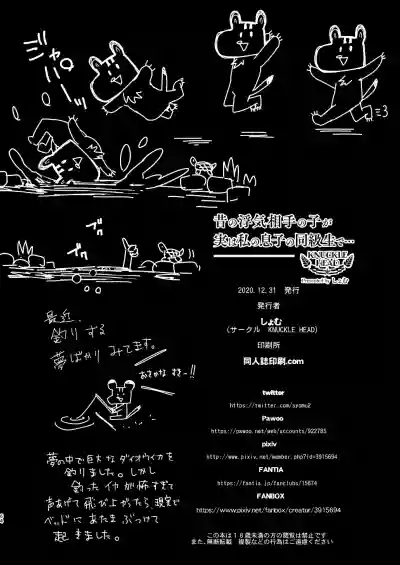 ジャバーーン
ミ3
ブク
ブク
昔の浮気相手の子が
実は私の息子の同級生で…
KNUCKLE
HEAD
Presented by しょむ
2020.12.31 発行
発行者
しょむ
(サークル KNUCKLE HEAD)
印刷所
同人誌印刷.com
twitter
https://twitter.com/syomu2
Pawoo
https://pawoo.net/web/accounts/922785
pixiv
http://www.pixiv.net/member.php?id=3915694
FANTIA
https://fantia.jp/fanclubs/15674
FANBOX
https://www.pixiv.net/fanbox/creator/3915694
この本は18歳未満の方の閲覧は禁止です
また、無断転載 複製などの行為はご遠慮ください
最近、
釣りする
夢ばかり みてます。
おさかな すきー!!
夢の中で巨大なダイオウイカを
釣りました。しかし
釣ったイカが怖すぎて
声あげて飛び上がったら、現実で
ベッドにあたまぶつけて
起きました。